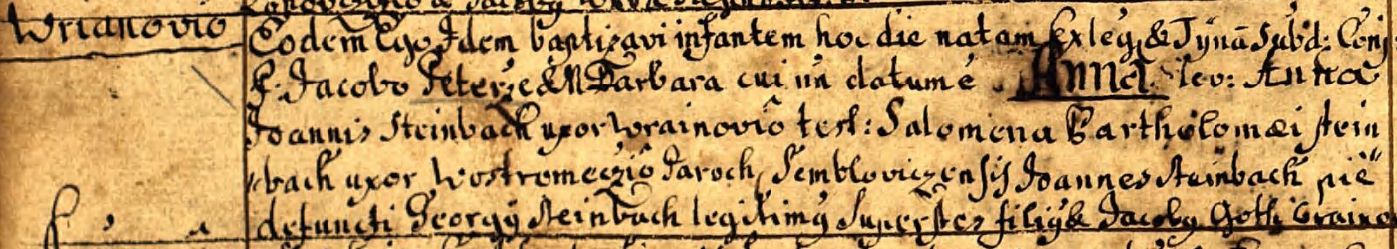 Wrianovio
Eodem Ego Idem baptizavi infantem hoc die natam ex leg: & Tÿnā Subd: Conj:
P: Jacobo Peterze & M Barbara cui nn datum ē Anna. lev: Anna
Joannis Steinbach uxor Wrainoviô test: Salomena Bartholomæi stein
bach uxor Wostromeczio Paroch, Sembloviczensis Joannes Steinbach piè
defuncti Georgÿ Steinbach legitimÿ Superstes filiÿ & Jacobÿ Goth Wraino